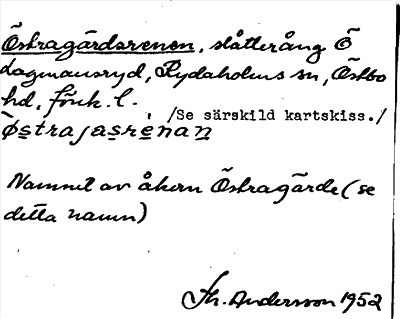 Östragärdsrenen, slåtteräng Ö
Lagmansryd, Rydaholms sn, Östbo
hd, Jönk. l.
/Se särskild kartskiss./
østrajasrénan
Namnet av åkern Östragärde (se
detta namn)
Th. Andersson 1952